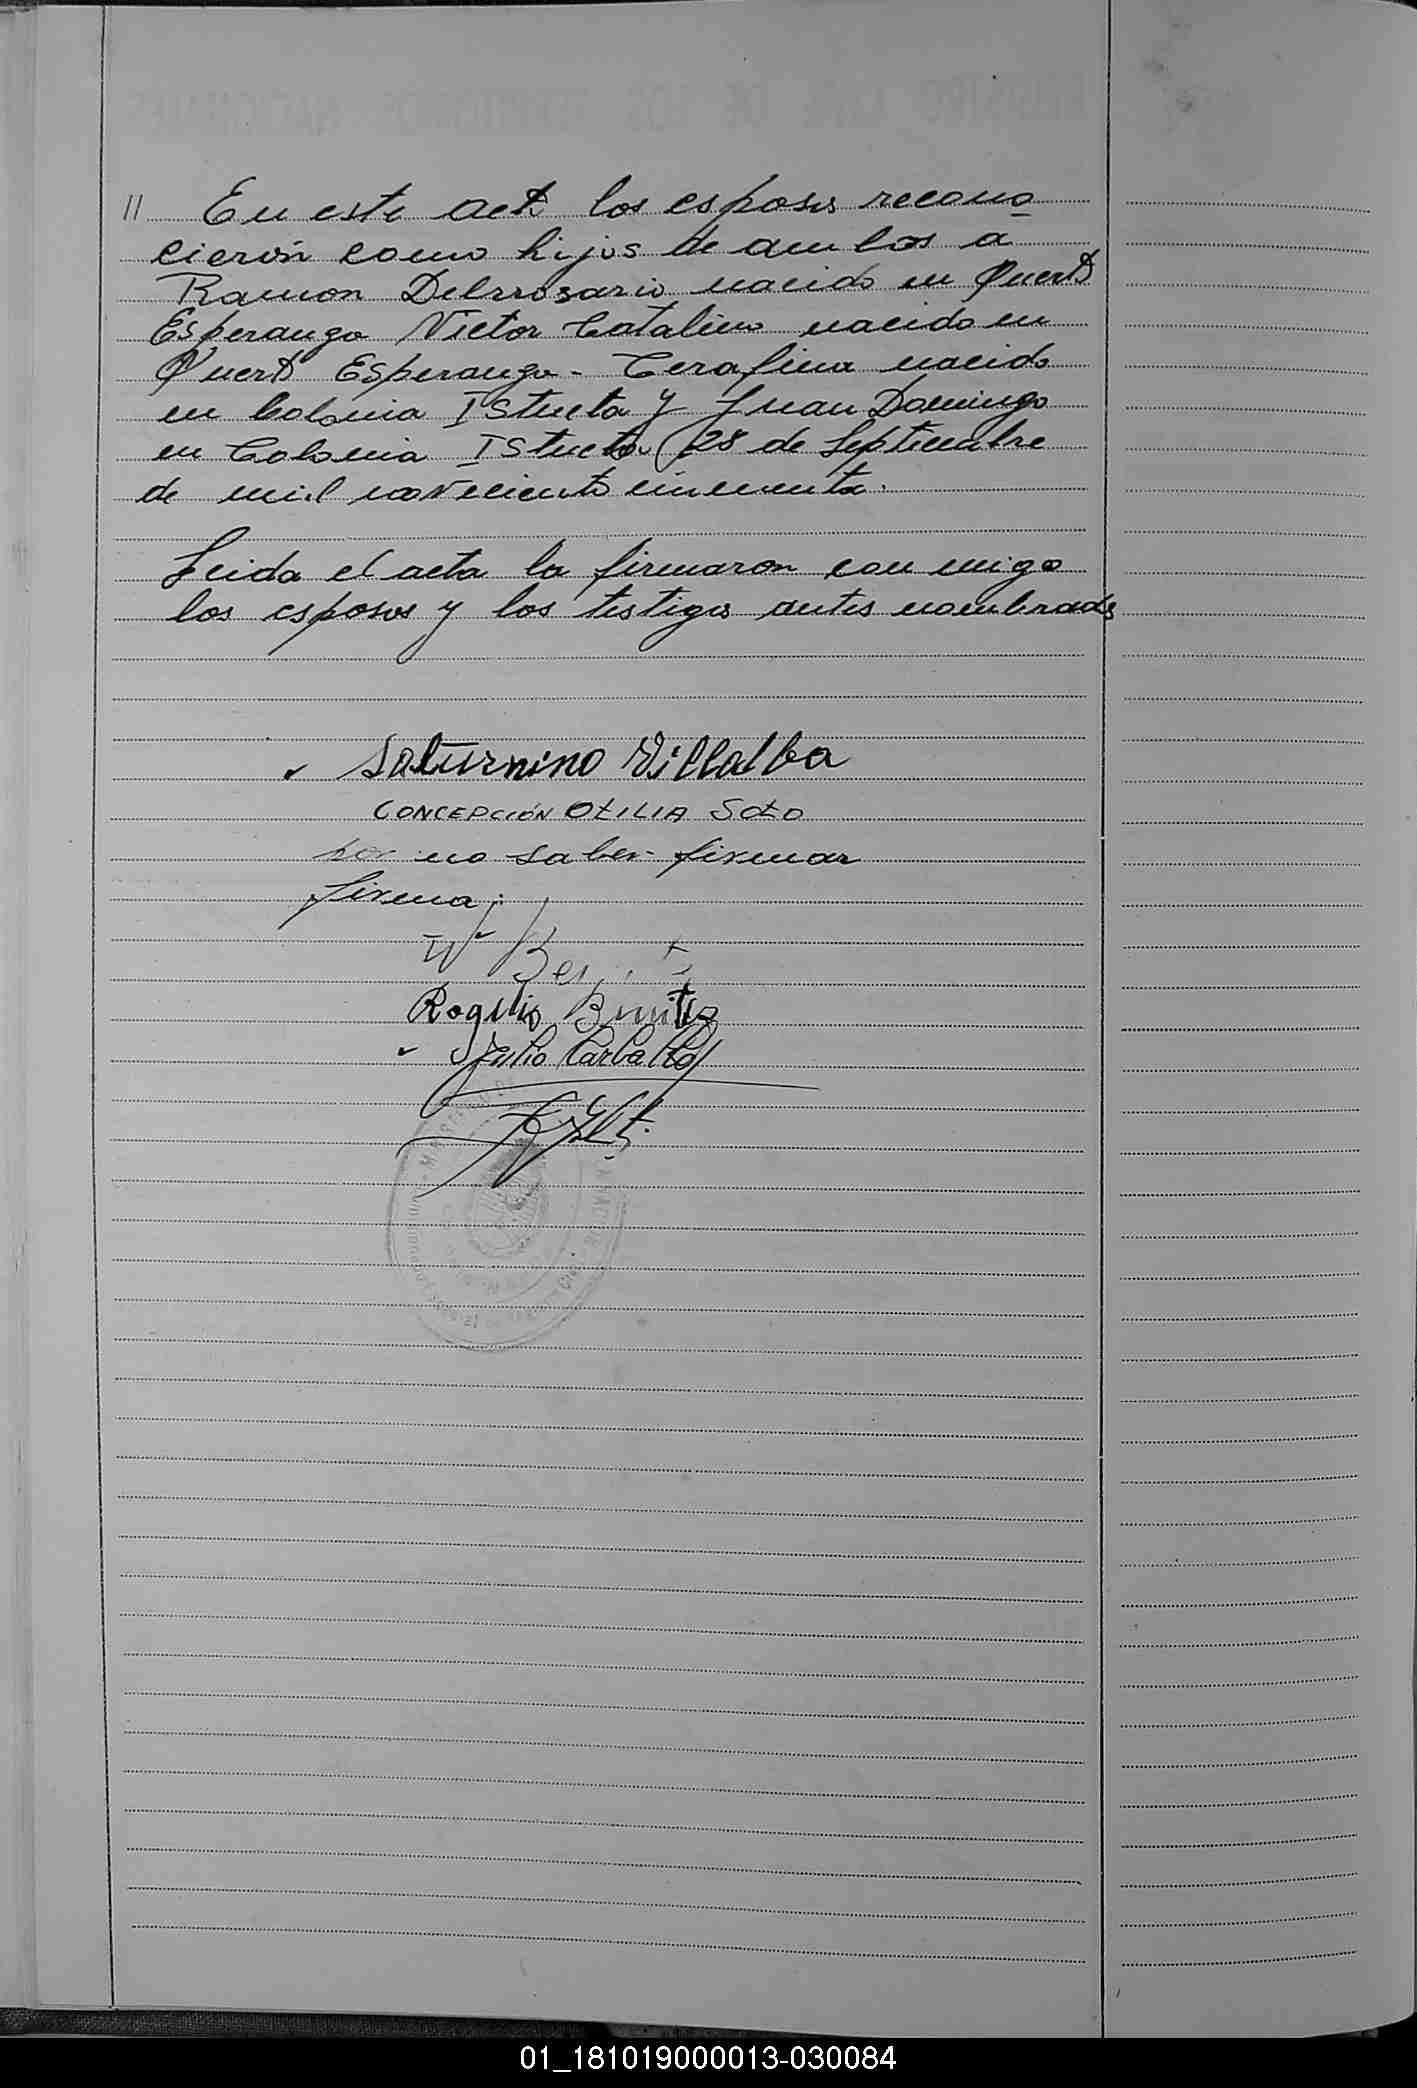 11 En este acto los esposos recono
cierón como hijos de ambos a
Ramon Delrrosario nacido en Puerto
Esperanza Victor Catalino nacido en
Puerto Esperanza - Cerafina nacido
en Colonia IStueta y Juan Domingo
en Colonia IStueta (28 de Septiembre
de mil novecientos cincuenta.
Leida el acta la firmaron con migo
los esposos y los testigos antes nombrados
Saturnino Villalba
CONCEPCIÓN OtILIA Soto
por no saber firmar
firma;
Rogelio Benitez
Julio Carballo
01_181019000013-030084